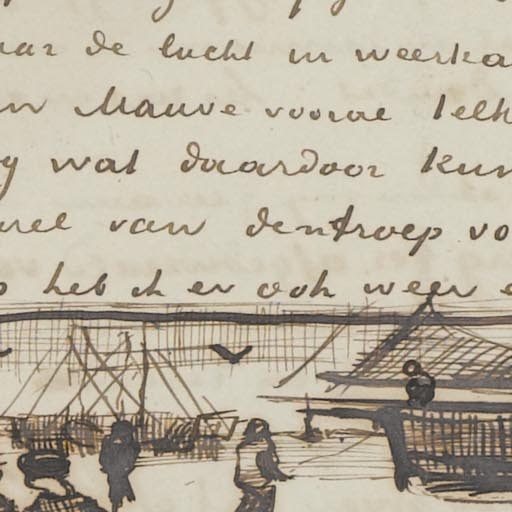 aar de lucht in weerka
n Mauve vooral telk
y wat daardoor kun
eel van den troep vo
o heb ik er ook weer e